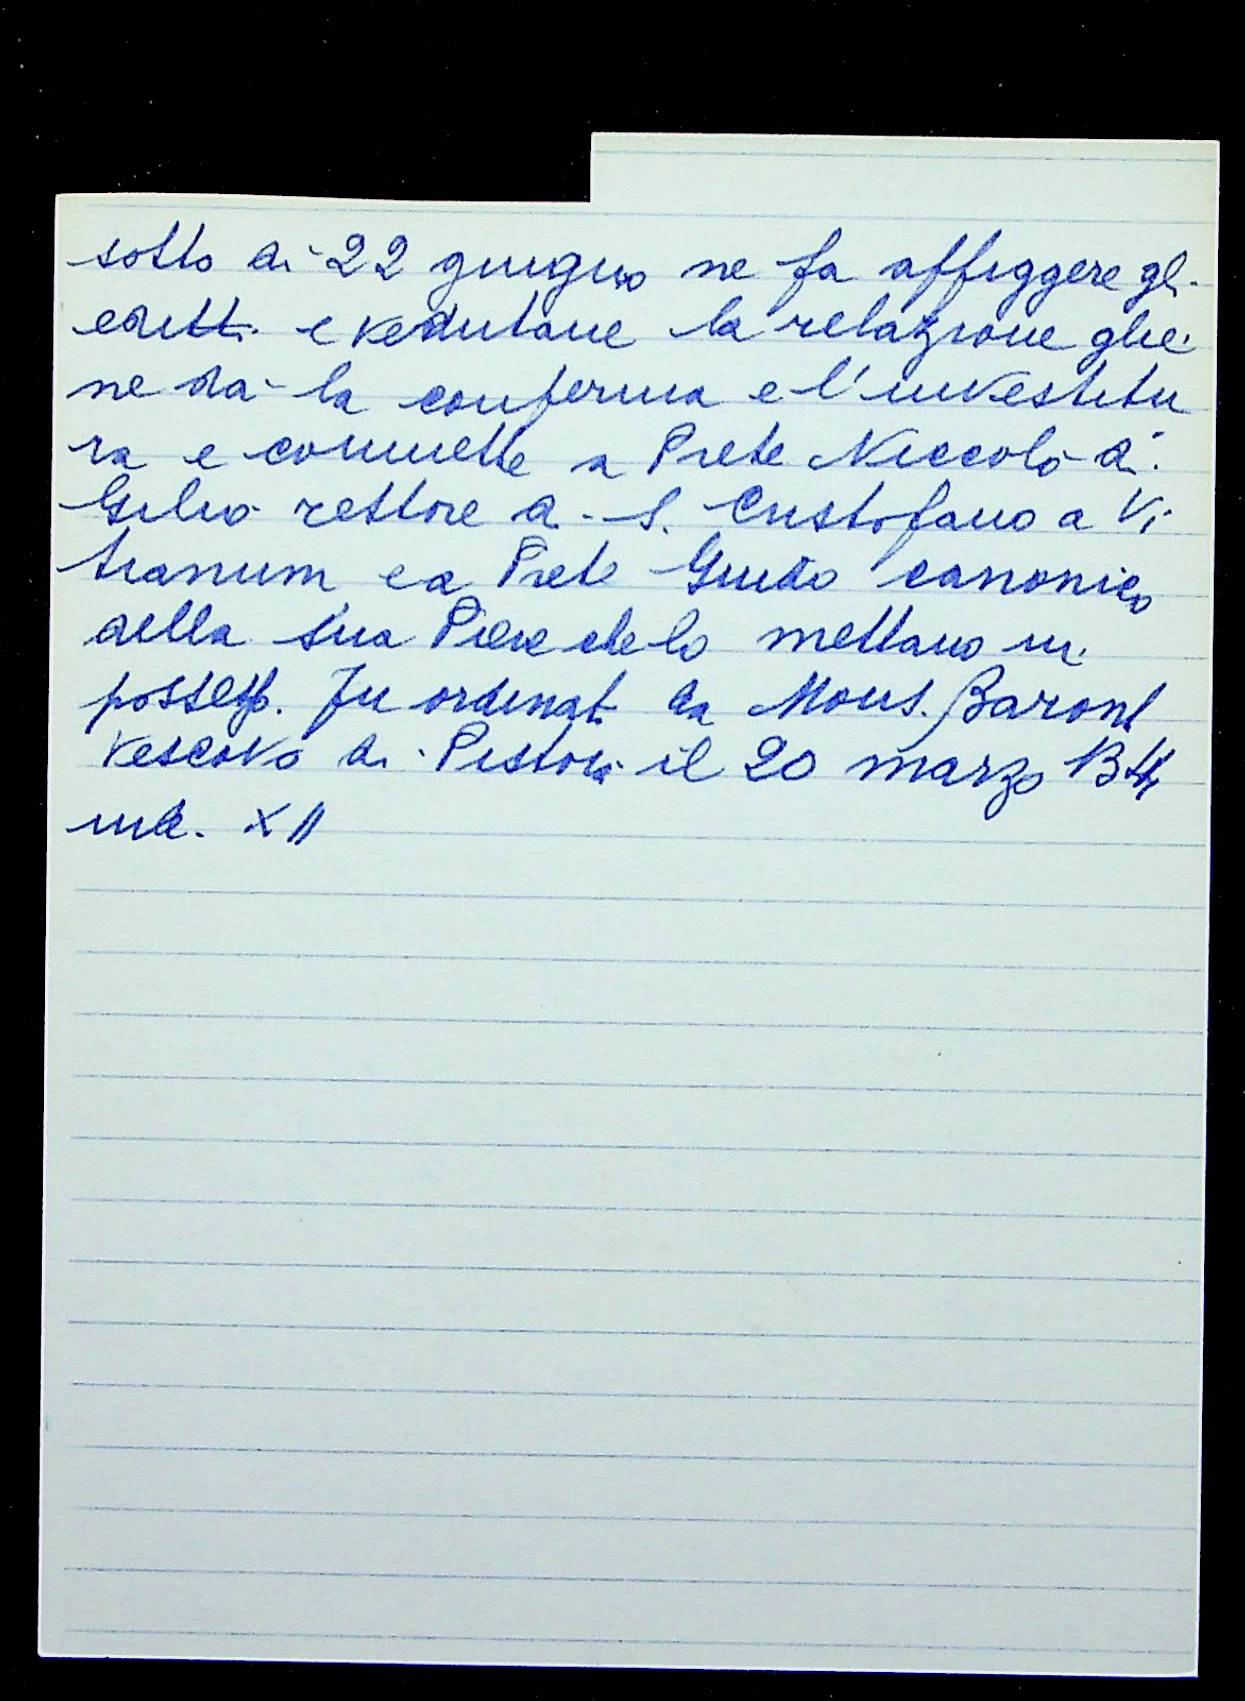 sotto dì 22 giugno ne fa affiggere gli
editti e vedutane la relazione glie
ne dà la conferma e l'investitu
ra e commette a Prete Niccolò di
Gilio rettore di S. Cristofano a Vi
tianum e a Prete Guido canonico
della sua Pieve che lo mettano in
possesso. Fu ordinat. da Mons. Baront
Vescovo di Pistoia il 20 marzo
ind. XII